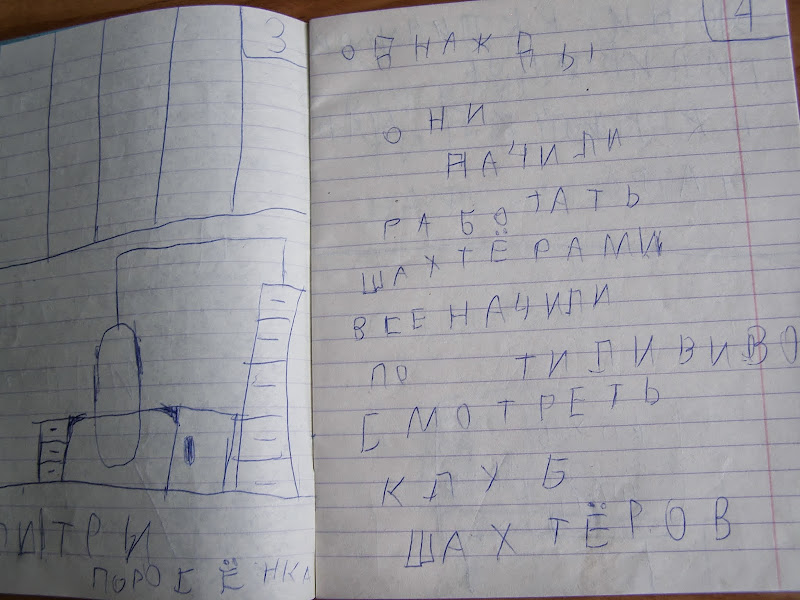 3
ТРИ
ПОРОСЁНКА
4
ОДНАЖДЫ
ОНИ
НАЧИЛИ
РАБОТАТЬ
ШАХТЁРАМИ
ВСЕ НАЧИЛИ
ПО ТИЛИВИВО
СМОТРЕТЬ
КЛУБ
ШАХТЁРОВ